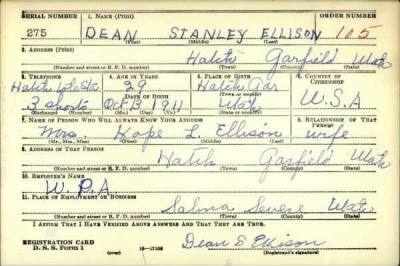 SERIAL NUMBER 1. NAME (Print) ORDER NUMBER
275 DEAN STANLEY ELLISON 105
(First) (Middle) (Last)
2. ADDRESS (Print)
Hatch Garfield Utah
(Number and street or R. F. D. number) (Town) (County) (State)
3. TELEPHONE 4. AGE IN YEARS 5. PLACE OF BIRTH 6. COUNTRY OF CITIZENSHIP
Hatch 29 Hatch Gar
DATE OF BIRTH (Town or county)
3 shorts Oct 13 1911 Utah U.S.A
(Exchange) (Number) (Mo.) (Day) (Yr.) (State or country)
7. NAME OF PERSON WHO WILL ALWAYS KNOW YOUR ADDRESS 8. RELATIONSHIP OF THAT PERSON
Mrs. Hope L Ellison wife
(Mr., Mrs., Miss) (First) (Middle) (Last)
9. ADDRESS OF THAT PERSON
Hatch Garfield Utah
(Number and street or R. F. D. number) (Town) (County) (State)
10. EMPLOYER'S NAME
W. P. A.
11. PLACE OF EMPLOYMENT OR BUSINESS
Salina Sevier Utah
(Number and street or R. F. D. number) (Town) (County) (State)
I AFFIRM THAT I HAVE VERIFIED ABOVE ANSWERS AND THAT THEY ARE TRUE.
REGISTRATION CARD
D. S. S. Form 1 (over) Dean S Ellison
(Registrant's signature)